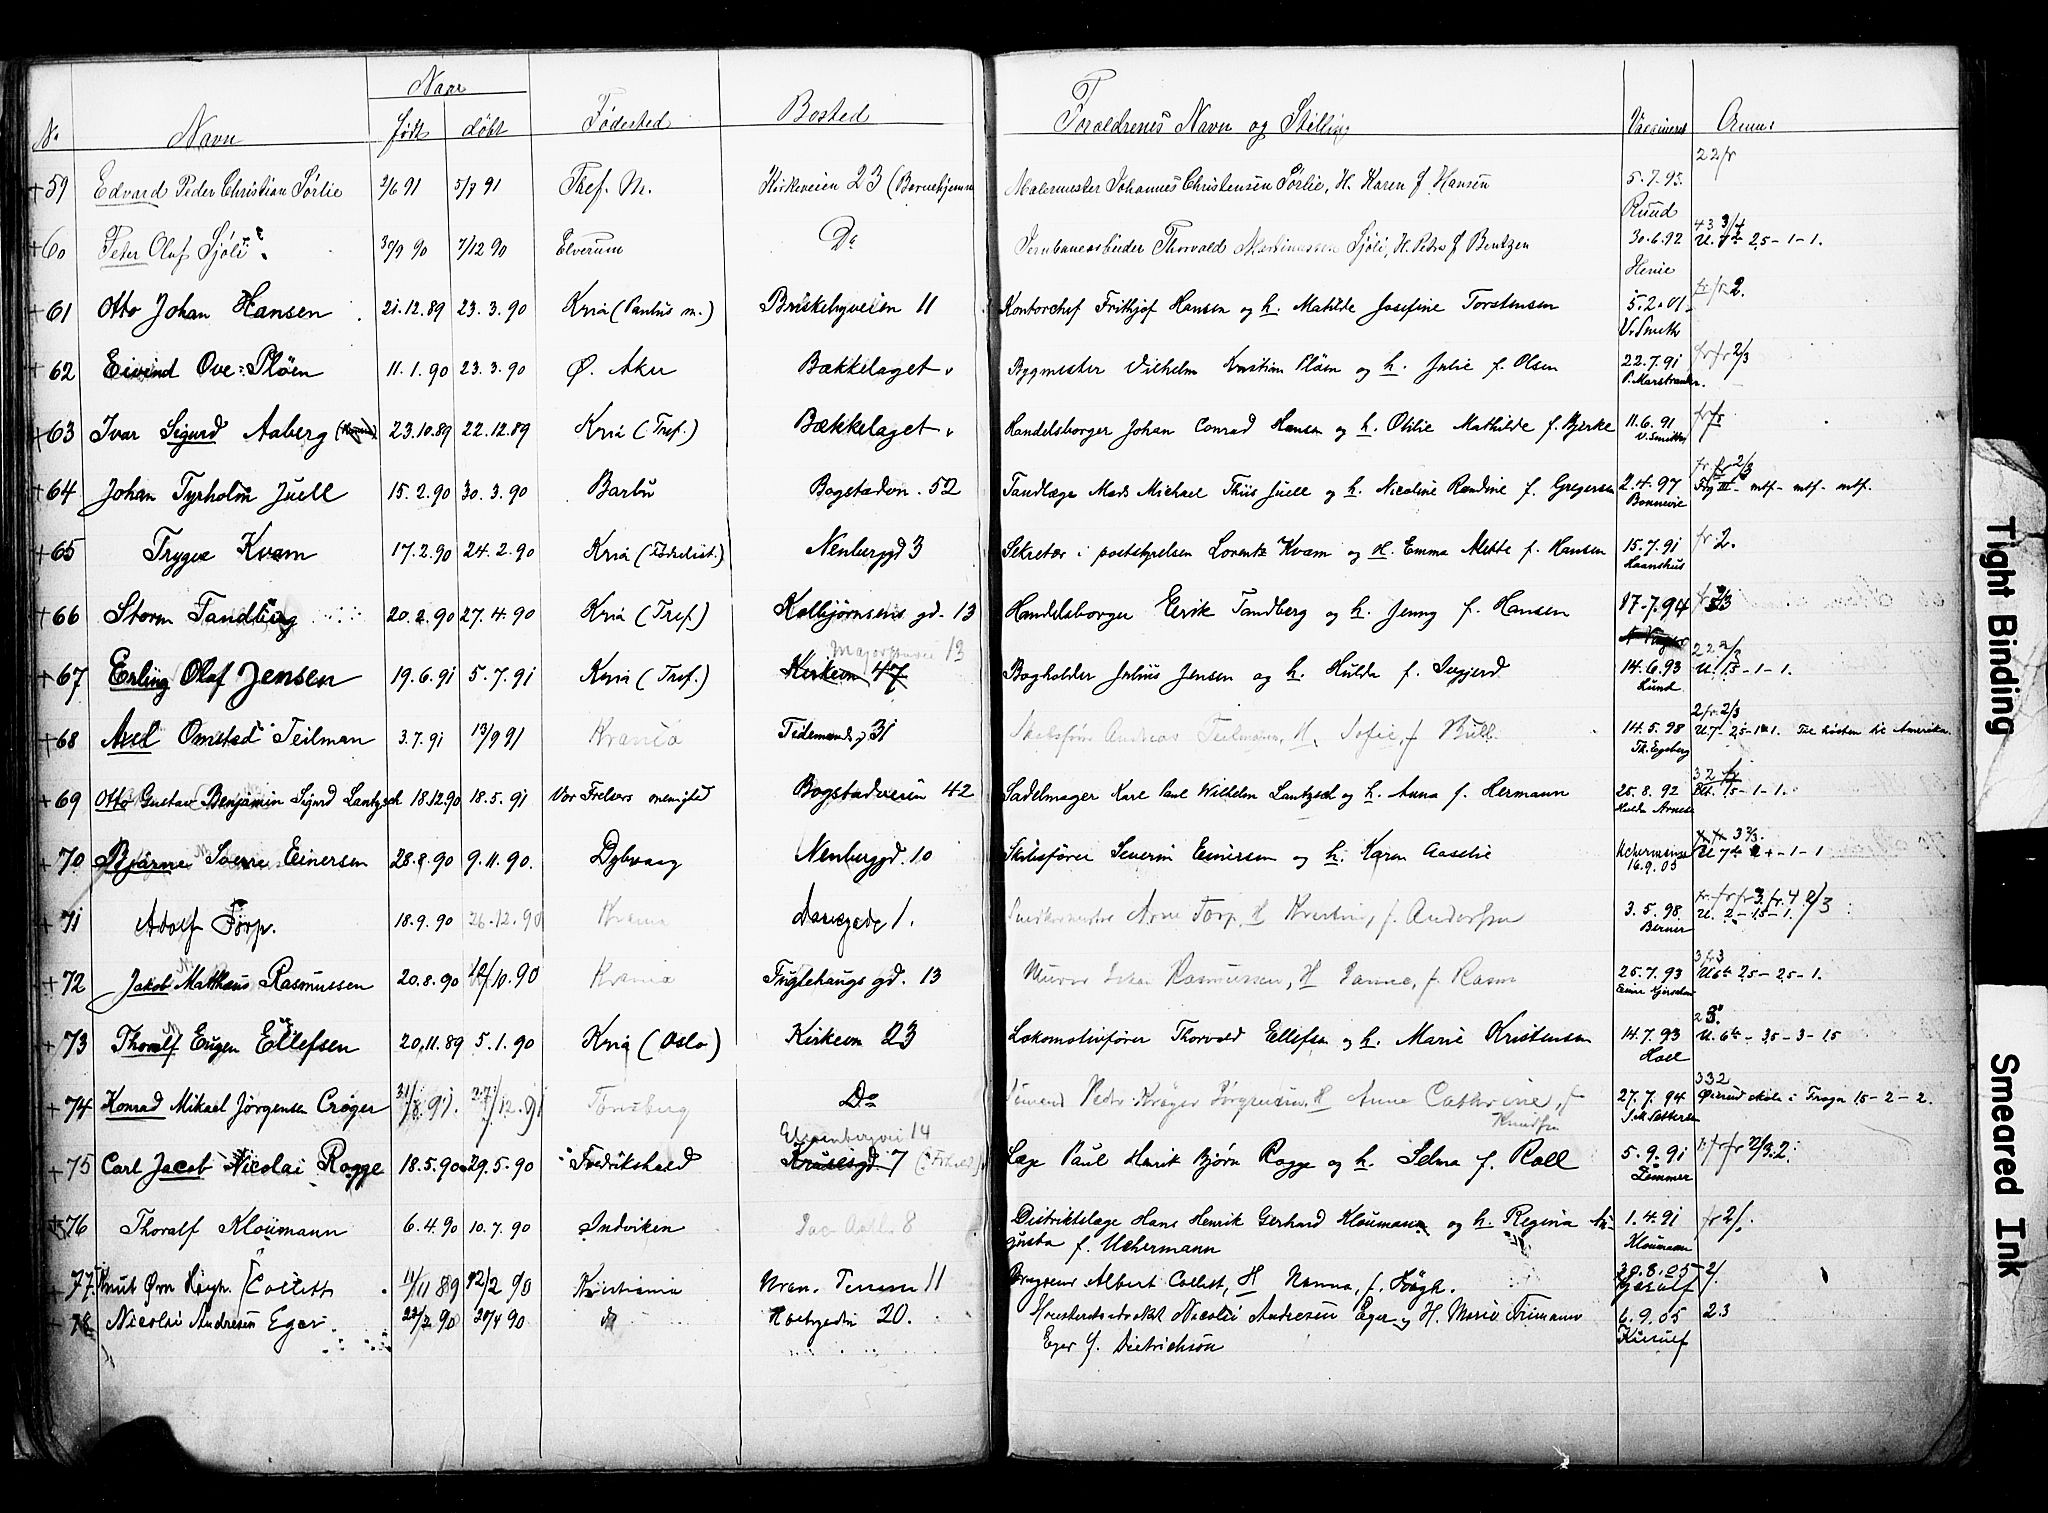 No. Navn Naar født døbt Fødested Bosted Foraldrenes Navn og Stilling Vaccineret Anm:
+59 Edvard Peder Christian Sørlie 3/6 91 5/7 91 Tref. M. Kirkeveien 23 (Barnehjemm Malermester Johannes Christensen Sørlie, H. Karen f. Hansen 5.7.95. Ruud 22/r
+60 Peter Olaf Sjöli 30/9 90 7/12 90 Elverum Do Jernbanearbeider Thorvald Martinussen Sjöli, H. Petra f Bentzen 30.6.92 Henie 43 3/4 U. 7de 2,5-1-1.
+61 Otto Johan Hansen 21.12.89 23.3.90 Kria (Paulus m.) Briskebyveien 11 Kontorchef Frithjof Hansen og h. Mathilde Josefine Torstensen 5.2.01 V. Smith fr. fr. 2.
+62 Eivind Ove Plöen 11.1.90 23.3.90 Ø. Aker Bækkelaget Bygmester Vilhelm Kristian Plöen og h. Julie f. Olsen 22.7.91 P. Marstrander. fr fr 2/3
+63 Ivar Sigurd Aaberg 23.10.89 22.12.89 Kria (Tref.) Bækkelaget Handelsborger Johan Conrad Hansen og h. Otilie Mathilde f. Bjerke 11.6.91 V. Smith fr fr
+64 Johan Tyrholm Juell 15.2.90 30.3.90 Barbu Bogstadvn. 52 Tandlæge Mads Michael Thiis Juell og h. Nicoline Randine f. Gregersen 2.4.97 Bonnevie fr. fr 2/3 III - mtf - mtf - mtf.
+65 Trygve Kvam 17.2.90 24.2.90 Kria Neuberggd 3 Sekretær i poststyrelsen Lorentz Kvam og H. Emma Mette f. Hansen 15.7.91 Haanshus fr. 2.
+66 Storm Tandberg 20.2.90 27.4.90 Kria (Tref.) Kolbjørnsens gd. 13 Handelsborger Eirik Tandberg og h. Jenny f. Hansen 17-7.94
+67 Erling Olaf Jensen 19.6.91 5.7.91 Kria (Tref.) Majorstuvei 13 Kirkevn 47 Bogholder Julius Jensen og h. Hulda f. 14.6.93 Lund 22 2/3 U. 1,5-1-1.
+68 Axel Omstad Teilman 3.7.91 13/9 91 Krania Tidemandsg 31 Skolefør Andreas Teilmann, H. Sofie, f Bull 14.5.98 Th. Egeberg 2 fr 2/3 U 7de 2,5-1-1. Til høsten til Amerika.
+69 Otto Gustav Benjamin Sigurd Lantzsch 18.12.90 18.5.91 Vor Frelsers menighed Bogstadveien 42 Sadelmager Karl Paul Wilhelm Lantzsch og h. Anna f. Hermann 25.8.92 Arnesen 1,5-1-1.
+70 Bjarne Soerre Einersen 28.8.90 9.11.90. Dybvaag Neuberggd. 10 Skibsfører Severin Einersen og h. Karen Aaselie Uchermann 16.9.05 3 2/3. U 7de 2+-1-1
+71 Adolf Torp. 18.9.90 26.12.90 Krania Daasgade 1. Snedkermester Arne Torp, H Kristine, f. Andersen 3.5.98. Berner fr. fr fr 3. fr. 4 2/3 U. 2-1,5-1
+72 Jakob Matthæus Rasmussen 20.8.90 12/10.90 Krania Fuglehaugs gd. 13 Murer Johan Rasmussen, H Janna, f. Rasm 25.7.93 Einar Kjerschow 3 fr 3 U 6te 2,5-2,5-1.
+73 Thoralf Eugen Ellefsen 20.11.89 5.1.90 Kria (Oslo) Kirkevn 23 Lokomotivfører Thorvald Ellefsen og h. Marie Kristensen 14.7.93 Hoel 23. U. 6te - 3,5-3-1,5
+74 Konrad Mikael Jörgensen Cröger 31/8.91. 27/12.91 Tönsberg Do Sömand Peder Kröger Jörgensen, H Anna Cathrine, f Knudsen 27.7.94 332 skole i Frogn 1,5-2-2.
+75 Carl Jacob Nicolai Rogge 18.5.90 29.5.90 Fredrikshald Eilesenbergvei 14 Krusesgd 7 Læge Paul Henrik Björn Rogge og h. Selma f. Roll 5.9.91 Zimmer fr fr 2/3. 2.
+76 Thoralf Kloümann 6.4.90 10.7.90 Indviken 8 Distriktslæge Hans Henrik Gerhard Kloumann og h. Regina Augusta f. Uchermann 1.4.91 Kloumann fr 2/.
+77 Knut Örn Høegh Collett 11/11 89 12/2 90 Kristiania Uran. Terrasse 11 Albert Collett, H Nanna, f. Høegh. 30.8.05 2/.
+78 Nicolai Andresen Eger 22/2 90 20/4 90 do Holtegaden 20. Høiesteretsadvokat Nicolai Andresen Eger og H. Marie Frimann Eger f. Dietrichson 6.9.05 23
Tight Binding
Smeared Ink